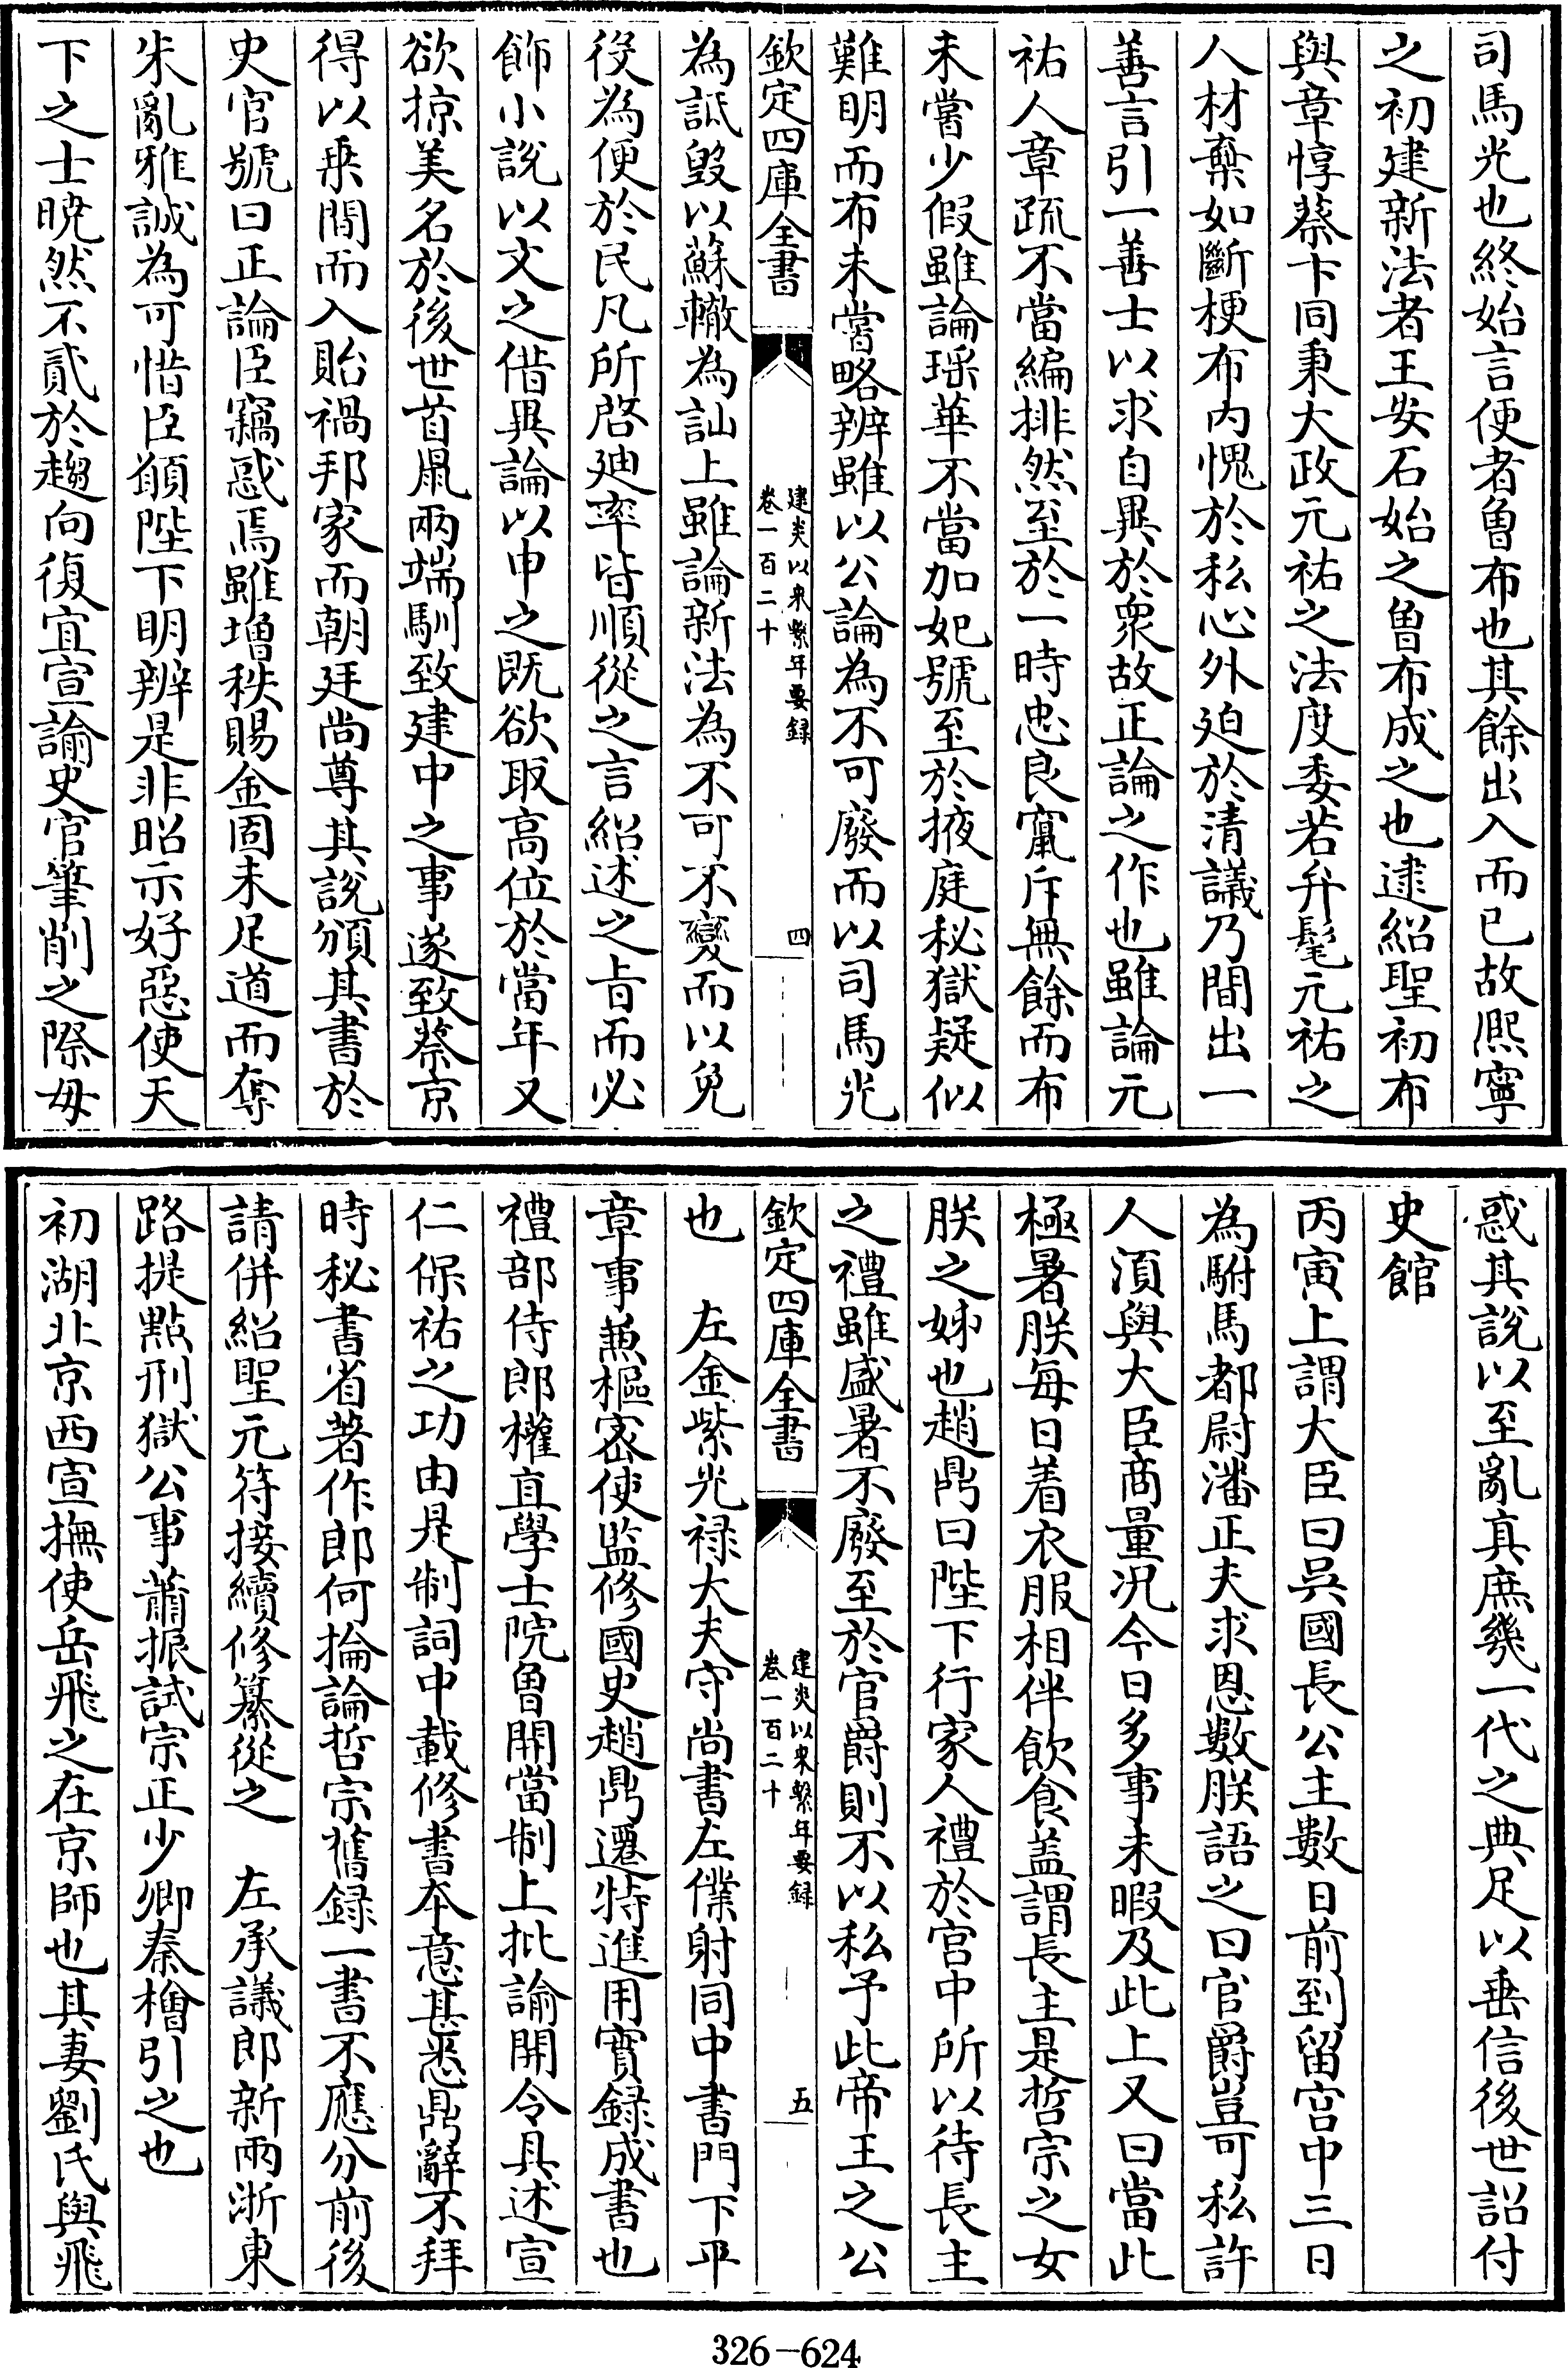 司馬光也終始言便者魯布也其餘出入而已故熙寧
之初建新法者王安石始之魯布成之也逮紹聖初布
與章惇蔡卞同秉大政元祐之法度委若弁髦元祐之
人材棄如斷梗布内愧於私心外廹於清議乃間出一
善言引一善士以求自異於衆故正論之作也雖論元
祐人章疏不當編排然至於一時忠良竄斥無餘而布
未嘗少假雖論瑶華不當加妃號至於掖庭秘獄疑似
難明而布未嘗略辨雖以公論為不可廢而以司馬光
欽定四庫全書
建炎以來繫年要録
卷一百二十
四
為詆毁以蘇轍為訕上雖論新法為不可不變而以免
役為便於民凡所啓廸率皆順從之言紹述之㫖而必
飾小說以文之借異論以申之既欲取高位於當年又
欲掠美名於後世首鼠兩端馴致建中之事遂致蔡京
得以乗間而入貽禍邦家而朝廷尚尊其說頒其書於
史官號曰正論臣竊惑焉雖增秩賜金固未足道而奪
朱亂雅誠為可惜臣顧陛下明辨是非昭示好惡使天
下之士曉然不貳於趨向復宜宣諭史官筆削之際毋
惑其說以至亂真庶幾一代之典足以垂信後世詔付
史館
丙寅上謂大臣曰吳國長公主數日前到留宫中三日
為駙馬都尉潘正夫求恩數朕語之曰官爵豈可私許
人須與大臣商量況今日多事未暇及此上又曰當此
極暑朕每日着衣服相伴飲食盖謂長主是哲宗之女
朕之姊也趙鼎曰陛下行家人禮於宫中所以待長主
之禮雖盛暑不廢至於官爵則不以私予此帝王之公
欽定四庫全書
建炎以來繫年要録
卷一百二十
五
也　左金紫光禄大夫守尚書左僕射同中書門下平
章事兼樞密使監修國史趙鼎遷特進用實録成書也
禮部侍郎權直學士院魯開當制上批諭開令具述宣
仁保祐之功由是制詞中載修書本意甚悉鼎辭不拜
時秘書省著作郎何掄論哲宗舊録一書不應分前後
請併紹聖元符接續修纂從之　左承議郎新兩浙東
路提點刑獄公事蕭振試宗正少卿秦檜引之也
初湖北京西宣撫使岳飛之在京師也其妻劉氏與飛
326-624